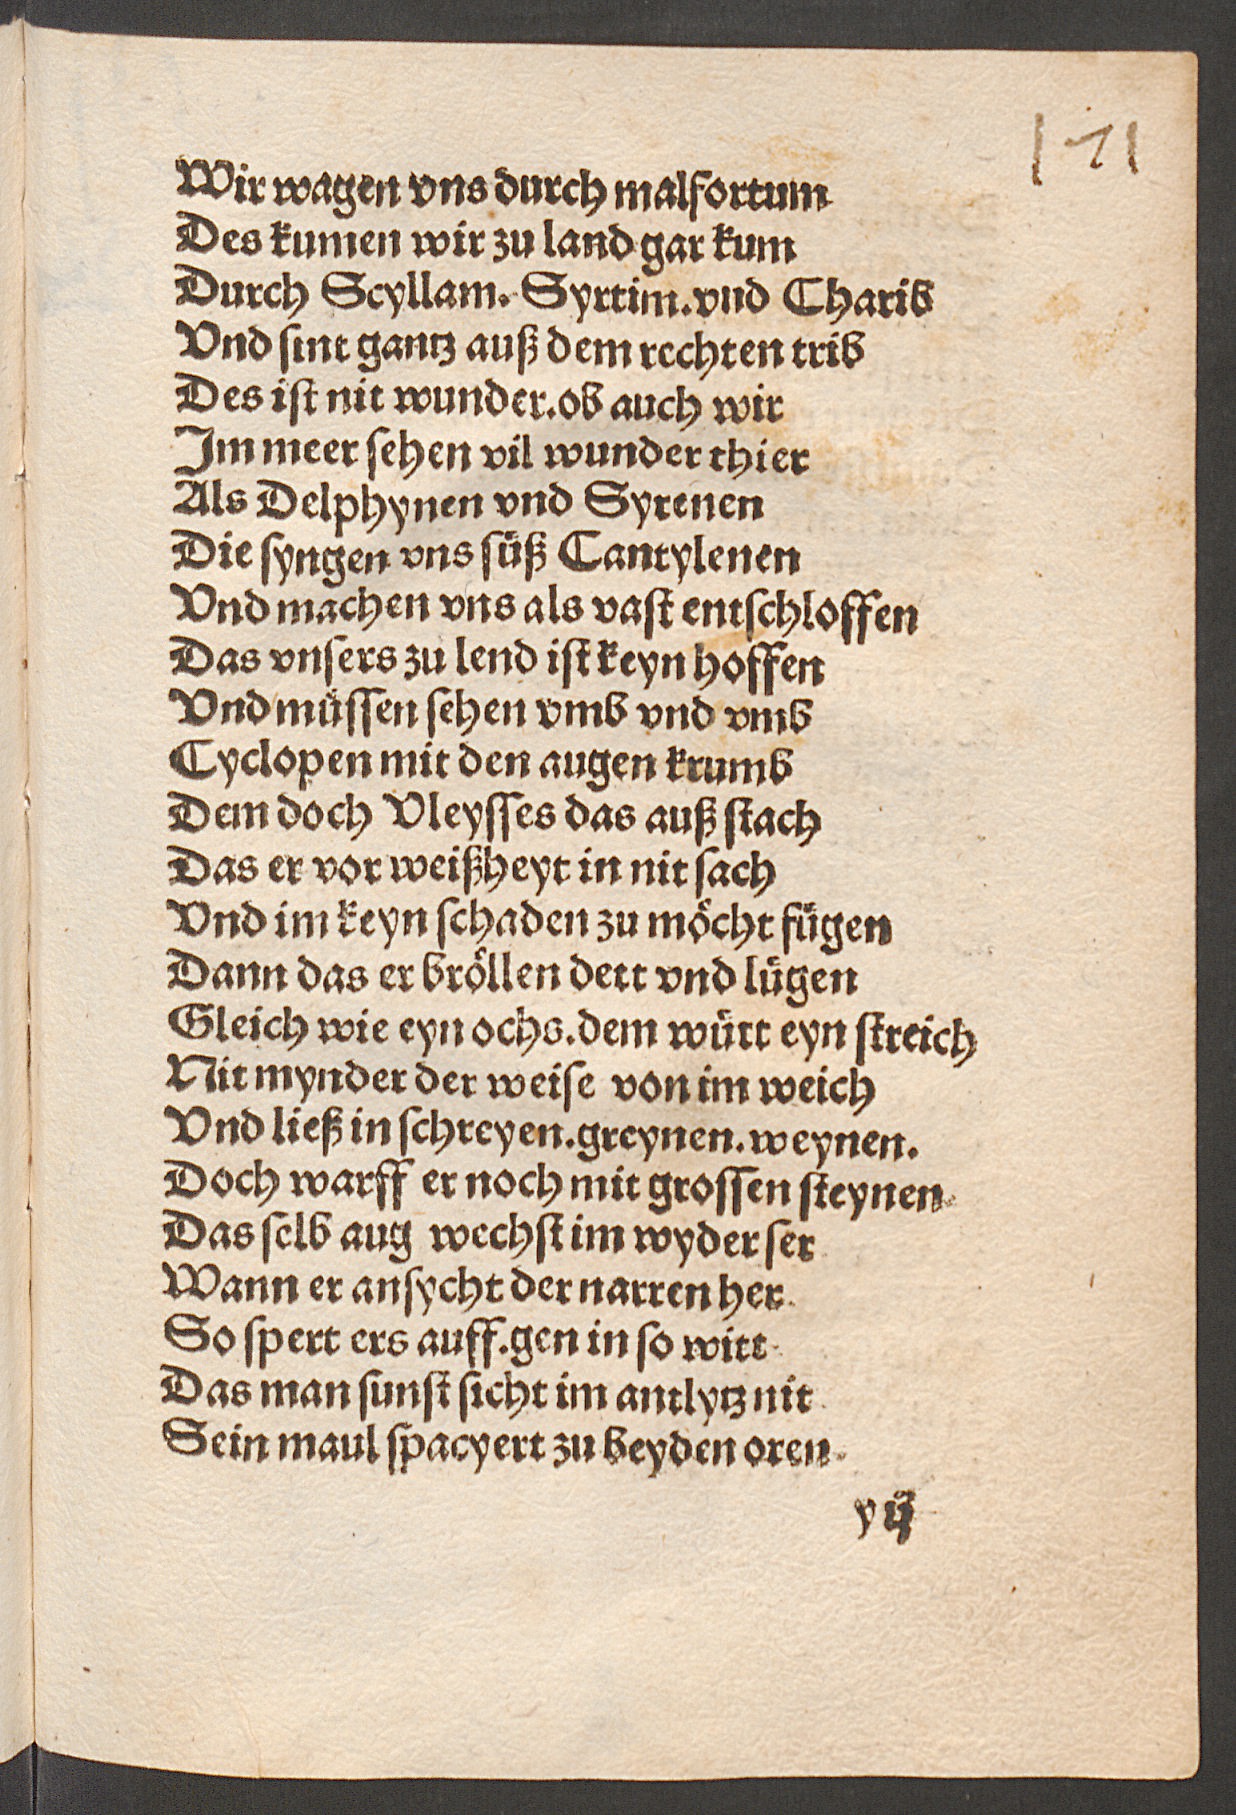 171
Wir wagen vns durch malfortum
Des kumen wir zu land gar kum
Durch Scyllam. Syrtim. vnd Charib
Vnd sint gantz auß dem rechten trib
Des ist nit wunder. ob auch wir
Im meer sehen vil wunder thier
Als Delphynen vnd Syrenen
Die syngen vns süß Cantylenen
Vnd machen vns als vast entschloffen
Das vnsers zu lend ist keyn hoffen
Vnd müssen sehen vmb vnd vmb
Cyclopen mit den augen krumb
Dem doch Vleysses das auß stach
Das er vor weißheyt in nit sach
Vnd im keyn schaden zu möcht fügen
Dann das er bröllen dett vnd lügen
Gleich wie eyn ochs. dem würt eyn streich
Nit mynder der weise von im weich
Vnd ließ in schreyen. greynen. weynen.
Doch warff er noch mit grossen steynen
Das selb aug wechst im wyder ser
Wann er ansycht der narren her
So spert ers auff. gen in so witt
Das man sunst sicht im antlytz nit
Sein maul spacyert zu beyden oren
y ij